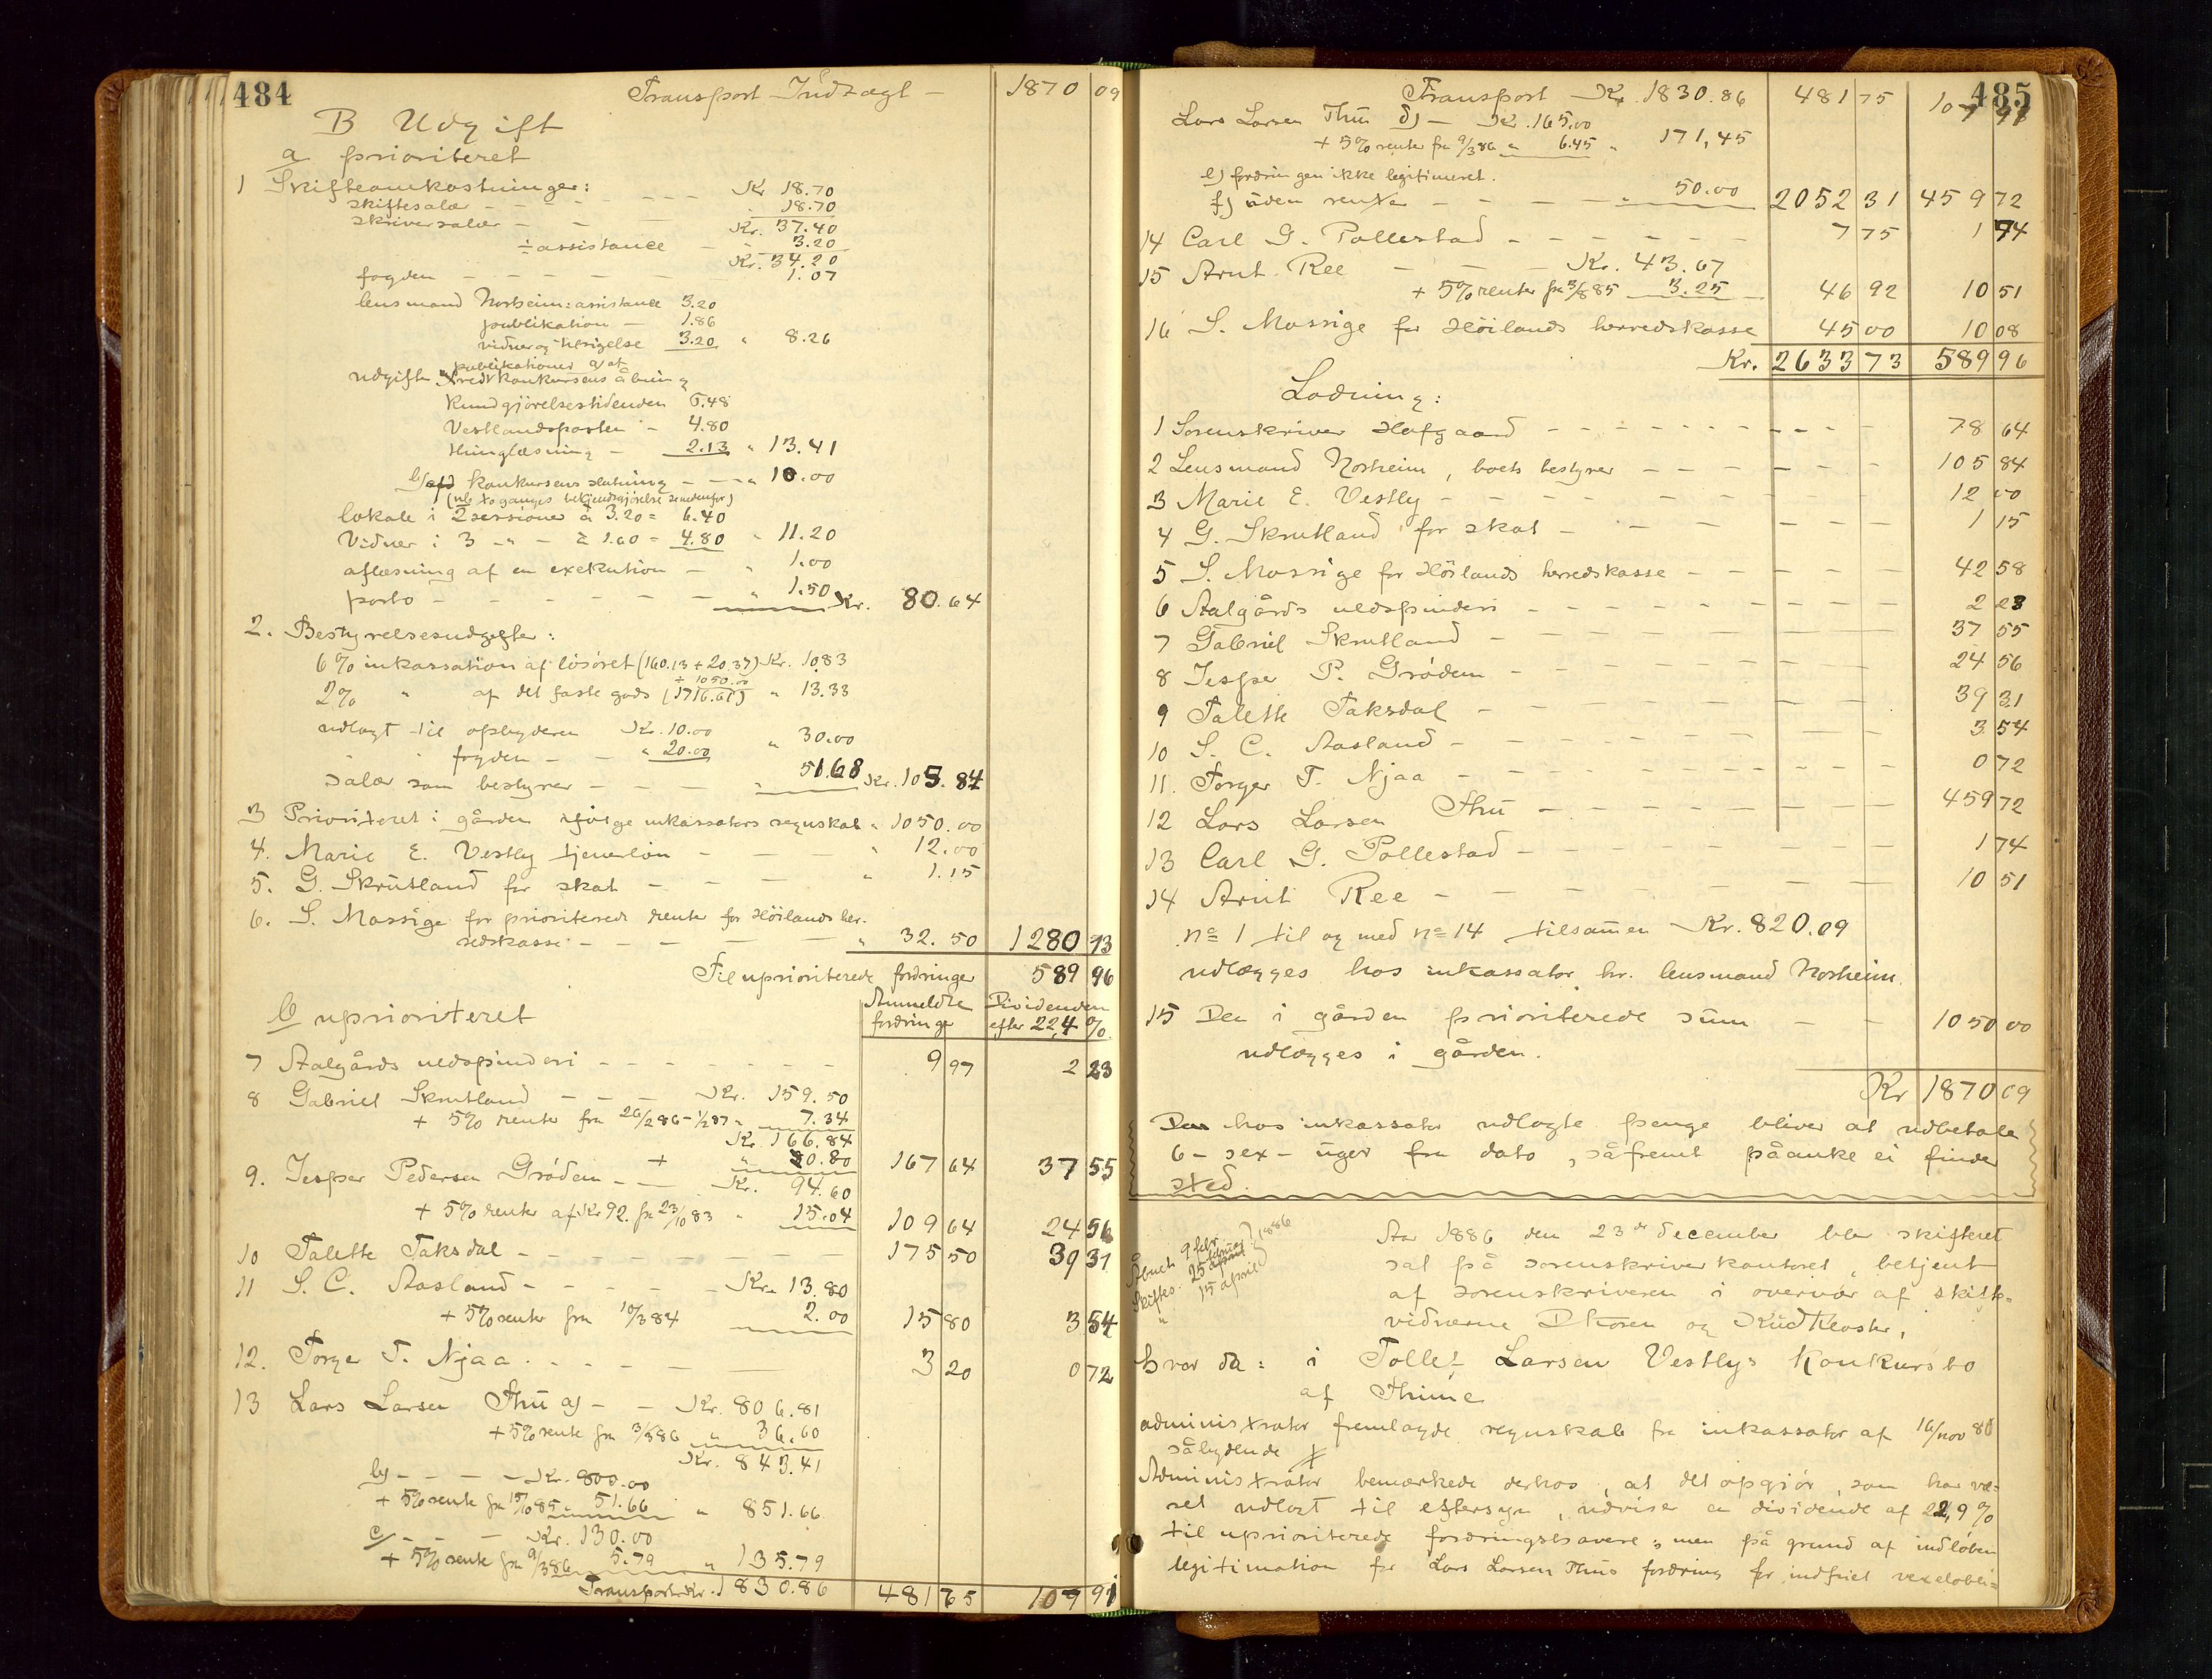 484
Transport Indtægt — 1870 09
B Udgift
a prioriteret
1 Skifteomkostninger:
skiftesalær — — — — — Kr 18.70
skriversalær — — — " 18.70
Kr. 37.40
÷ assistance — " 3.20
Kr. 34.20
fogden — — — — — — " 1.07
lensmand Norheim: assistance 3.20
publikation — 1.86
vidner og tilsigelse 3.20 " 8.26
publikationer a) at
udgifter ved konkursens åbning
Kundgjørelsestidenden 6.48
Vestlandsposten — 4.80
thinglæsning — 2.13 " 13.41
b) konkursens slutning — — " 10.00
lokale i 2 sessioner à 3.20 = 6.40
Vidner i 3 — " — à 1.60 = 4.80 " 11.20
aflæsning af en exekution — " 1.00
porto — — — — — — " 1.50 Kr. 80.64
2. Bestyrelsesudgifter:
6% inkassation af løsøret (160.13 + 20.37) Kr. 10.83
÷ 1050.00
2% " af det faste gods (1716.67) " 13.33
udlagt til opbyderen Kr. 10.00
fogden — — " 20.00 " 30.00
salær som bestyrer — — — " 51.68 Kr. 105.84
3 Prioriteret i gården ifølge inkassators regnskab " 1050.00
4. Marie E. Vestly tjenerløn — — — " 12.00
5. G. Skrutland for skat — — — " 1.15
6. S. Mossige for prioriterede renter for Höilands her-
redskasse — — — — — " 32.50 1280 13
Til uprioriterede fordringer 589 96
b uprioriteret
Anmeldte fordringer Dividenden efter 22,4 %
7 Aalgårds uldspinderi — — — — — — 9 97 2 23
8 Gabriel Skrutland — — — Kr. 159.50
+ 5% rente fra 26/2 86 – 1/2 87 " 7.34
Kr. 166.84
+ " 0.80 167 64 37 55
9. Jesper Pedersen Grödem — — Kr. 94.60
+ 5% renter af Kr 92. fra 23/10 83 " 15.04 109 64 24 56
10 Talette Taksdal — — — — — — — 175 50 39 31
11 S. C. Aasland — — — — — Kr. 13.80
+ 5% renter fra 10/3 84 2.00 15 80 3 54
12. Torger T. Njaa — — — — — 3 20 0 72
13 Lars Larsen Thu a) — — Kr. 806.81
+ 5% rente fra 3/3 86 " 36.60
Kr. 843.41
b) — — — — Kr. 800.00
+ 5% rente fra 15/10 85 " 51.66 " 851.66
c) — — — Kr. 130.00
+ 5% rente fra 9/3 86 5.79 " 135.79
Transport Kr. 1830.86 481 75 109 91
485
Transport Kr. 1830.86 481 75 109 91
Lars Larsen Thu d) — Kr. 165.00
+ 5% renter fra 9/3 86 " 6.45 " 171,45
e) fordringen ikke legitimeret.
f) uden rente — — — — — " 50.00 2052 31 459 72
14 Carl G. Pollestad — — — — — — 7 75 1 74
15 Arnt Ree — — — Kr. 43.67
+ 5% renter fra 3/8 85 3.25 46 92 10 51
16 S. Mossige for Höilands herredskasse 45 00 10 08
Kr. 2633 73 589 96
Lodning:
1 Sorenskriver Hofgaard — — — — — — — — 78 64
2 Lensmand Norheim, boets bestyrer — — — — — 105 84
3 Marie E. Vestly — — — — — — — — 12 00
4 G. Skrutland for skat — — — — — — 1 15
5 S. Mossige for Höilands herredskasse — — — — — 42 58
6 Aalgårds uldspinderi — — — — — — — — 2 23
7 Gabriel Skrutland — — — — — — — — 37 55
8 Jesper P. Grödem — — — — — — — 24 56
9 Talette Taksdal — — — — — — — — 39 31
10 S. C. Aasland — — — — — — — — 3 54
11. Torger T. Njaa — — — — — — — — 0 72
12 Lars Larsen Thu — — — — — — — 459 72
13 Carl G. Pollestad — — — — — — — 1 74
14 Arnt Ree — — — — — — — — 10 51
no 1 til og med no 14 tilsamen Kr. 820.09
udlægges hos inkassator, hr. lensmand Norheim.
15 Den i gården prioriterede sum — — 1050 00
udlægges i gården.
Kr 1870 09
De hos inkassator udlagte penge bliver at udbetale
6 – sex – uger fra dato, såfremt påanke ei finder
sted.
Åbnet 9 febr
Skiftes. 25 februar 1886
" 15 april
Aar 1886 den 23de december blev skifteret
sat på sorenskriverkontoret, betjent
af sorenskriveren i overvær af skifte-
vidnerne Dhoren og Klud Kloster,
hvor da: i Tollef Larsen Vestlys Konkursbo
af Thime
administrator fremlagde regnskab fra inkassator af 16/nov 86
sålydende
Administrator bemærkede derhos, at det opgjör, som har væ-
ret udlagt til eftersyn, udviser en dividende af 22,9 %
til uprioriterede fordringshavere; men på grund af indløben
legitimation for Lars Larsen Thus fordring for indfriet vexelobli-